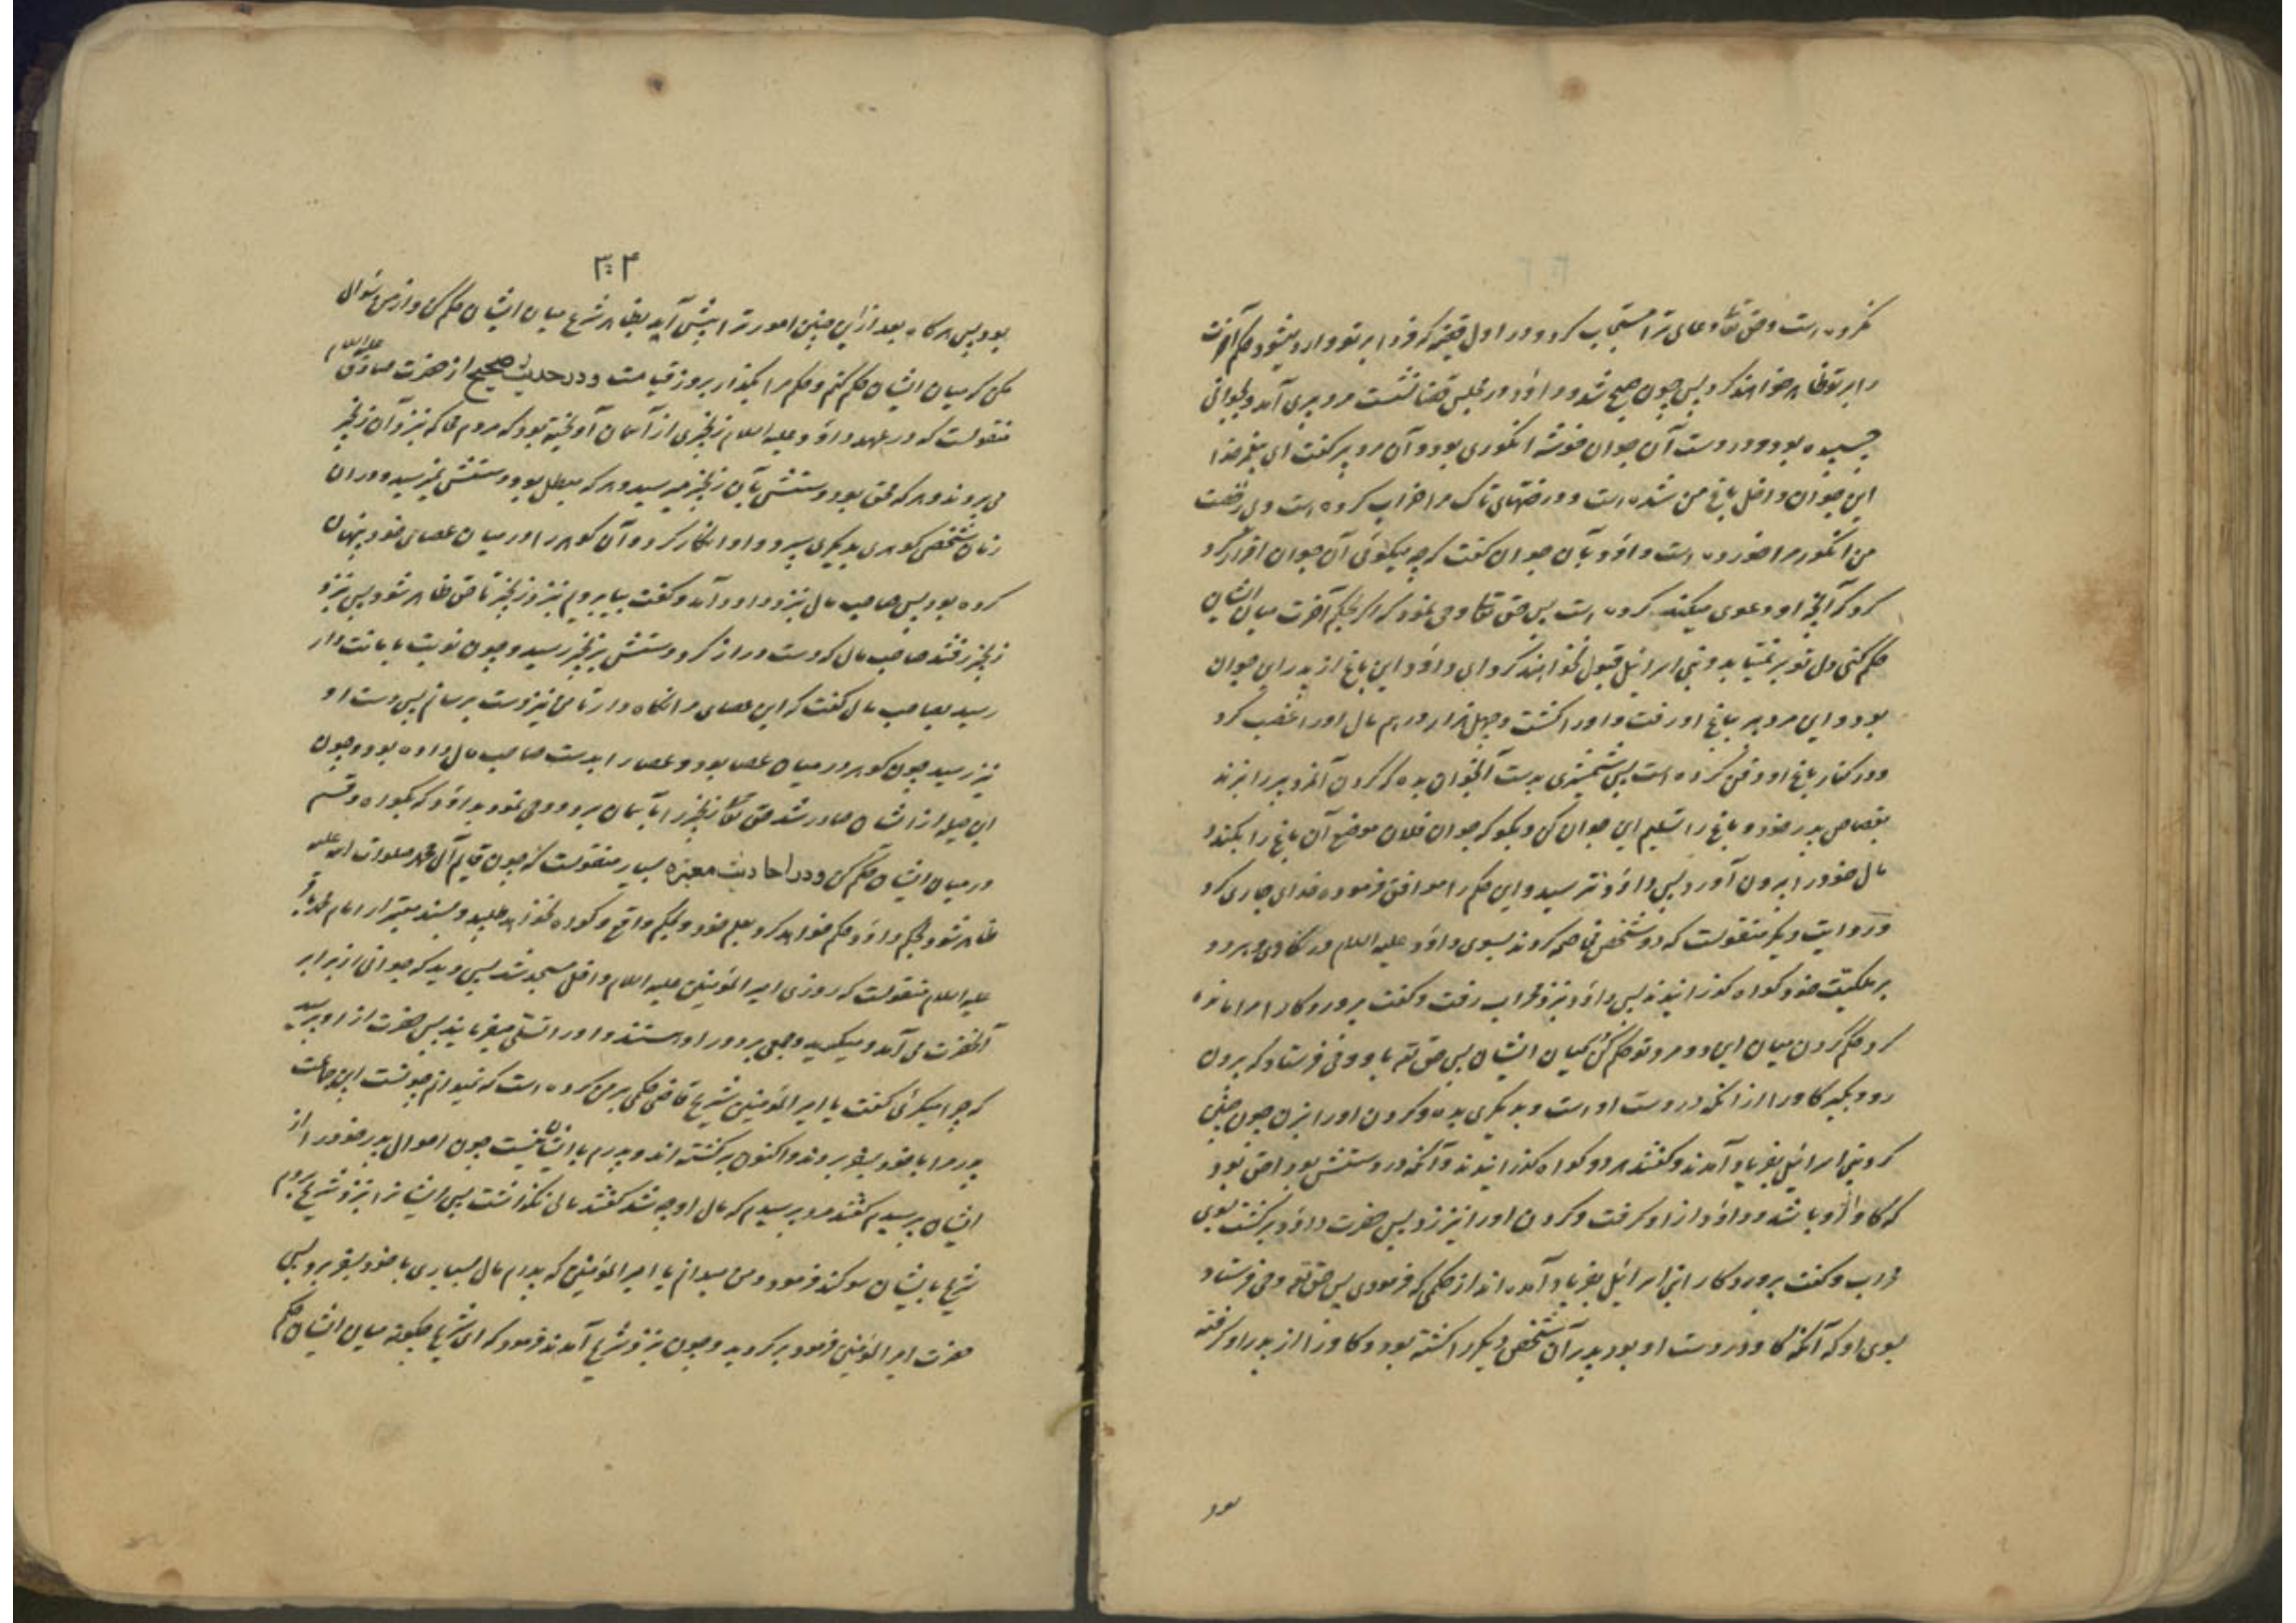 نکرده است و حق تعالی دعای ترا مستجاب کرد و در اول قضیه که فردا بر تو وارد میشود حکم آخرت
را بر تو ظاهر خواهند کرد پس چون صبح شد و داود در مجلس قضا نشست مرد پیری آمد و بجوانی
چسپیده بود و در دست آن جوان خوشه انگوری بود و آن مرد پیر گفت ای پیغمبر خدا
این جوان داخل باغ من شده است و درختهای تاک مرا خراب کرده است و بی رخصت
من انگور مرا خورده است داود بآن جوان گفت که چه میگوئی آن جوان اقرار کرد
کرد که آنچه او دعوی میکند کرده است پس حق تعالی وحی نمود که اگر بحکم آخرت میان ایشان
حکم کنی دل تو بر نمیتابد و بنی اسرائیل قبول نخواهند کرد ای داود این باغ از پدر این جوان
بود و این مرد پیر بباغ او رفت و او را کشت و چهل هزار درهم مال او را غصب کرد
و در کنار باغ او دفن کرده است پس شمشیری بدست آنجوان بده که گردن آنمرد پیر را بزند
بقصاص پدر خود و باغ را تسلیم این جوان کن و بگو که جوان فلان موضع آن باغ را بکند و
مال خود را بیرون آورد پس داود ترسید و این حکم را موافق فرموده خدای جاری کرد
و در روایت دیگر منقولست که دو شخص مخاصمه کردند بسوی داود علیه السلام در گاوی و هر دو
بر ملکیت خود گواه گذرانیدند پس داود بنزد محراب رفت و گفت پروردگارا مرا مانده
کرد حکم کردن میان این دو مرد تو حکم کن میان ایشان پس حق تعه باو وحی فرستاد که برون
رو و بگیر گاو را از آنکه در دست او است و بدیگری بده و گردن او را بزن چون چنین
کرد بنی اسرائیل بفریاد آمدند و گفتند هر دو گواه گذرانیدند و آنکه در دستش بود احق بود
که گاو از او باشد و داود از او گرفت و گردن او را نیز زد پس حضرت داود برگشت بسوی
محراب و گفت پروردگارا بنی اسرائیل بفریاد آمده اند از حکمی که فرمودی پس حق تعه وحی فرستاد
بسوی او که آنکه گاو در دست او بود پدر آن شخص دیگر را کشته بود و گاو را از پدر او گرفته
بود
۳۰۴
بود پس هرگاه بعد از این چنین امور ترا پیش آید بظاهر شرع میان ایشان حکم کن و از من سئوال
مکن که میان ایشان حکم کنم و حکم مرا بگذار بروز قیامت و در حدیث صحیح از حضرت صادق علیه السلام
منقولست که در عهد داود علیه السلام زنجیری از آسمان آویخته بود که مردم محاکمه بنزد آن زنجیر
می بردند و هر که محق بود دستش بآن زنجیر میرسید و هر که مبطل بود دستش نمیرسید و در ان
زمان شخصی گوهری بدیگری سپرد و او انکار کرد و آن گوهر را در میان عصای خود پنهان
کرده بود پس صاحب مال بنزد داود آمد و گفت بیا برویم بنزد زنجیر تا حق ظاهر شود پس بنزد
زنجیر رفتند صاحب مال که دست دراز کرد دستش بزنجیر رسید و چون نوبت بامانت دار
رسید بصاحب مال گفت که این عصای مرا نگاه دار تا من نیز دست برسانم پس دست او
نیز رسید چون گوهر در میان عصا بود و عصا را بدست صاحب مال داده بود و چون
این حیله از ایشان صادر شد حق تعالی زنجیر را بآسمان برد و وحی نمود بداود که بگواه و قسم
در میان ایشان حکم کن و در احادیث معتبره بسیار منقولست که چون قایم آل محمد صلوات الله علیه
ظاهر شود بحکم داود حکم خواهد کرد بعلم خود و بحکم واقع و گواه نخواهد طلبید و بسند معتبر از امام محمد باقر
علیه السلام منقولست که روزی امیر المؤمنین علیه السلام داخل مسجد شد پس دید که جوانی از برابر
آنحضرت می آمد و میگرید و جمعی بر دور او هستند و او را تسلی میفرمایند پس حضرت از او پرسید
که چرا میگرئی گفت یا امیر المؤمنین شریح قاضی حکمی بر من کرده است که نمیدانم چونست این جماعت
پدر مرا با خود بسفر بردند و اکنون برگشته اند و پدرم با ایشان نیست چون احوال پدر خود را از
ایشان پرسیدم گفتند مرد پرسیدم که مال او چه شد گفتند مالی نگذاشت پس ایشانرا بنزد شریح بردم
شریح بایشان سوگند فرمود و من میدانم یا امیر المؤمنین که پدرم مال بسیاری با خود بسفر برد پس
حضرت امیر المؤمنین فرمود برگردید و چون بنزد شریح آمدند فرمود که ای شریح چگونه میان ایشان حکم